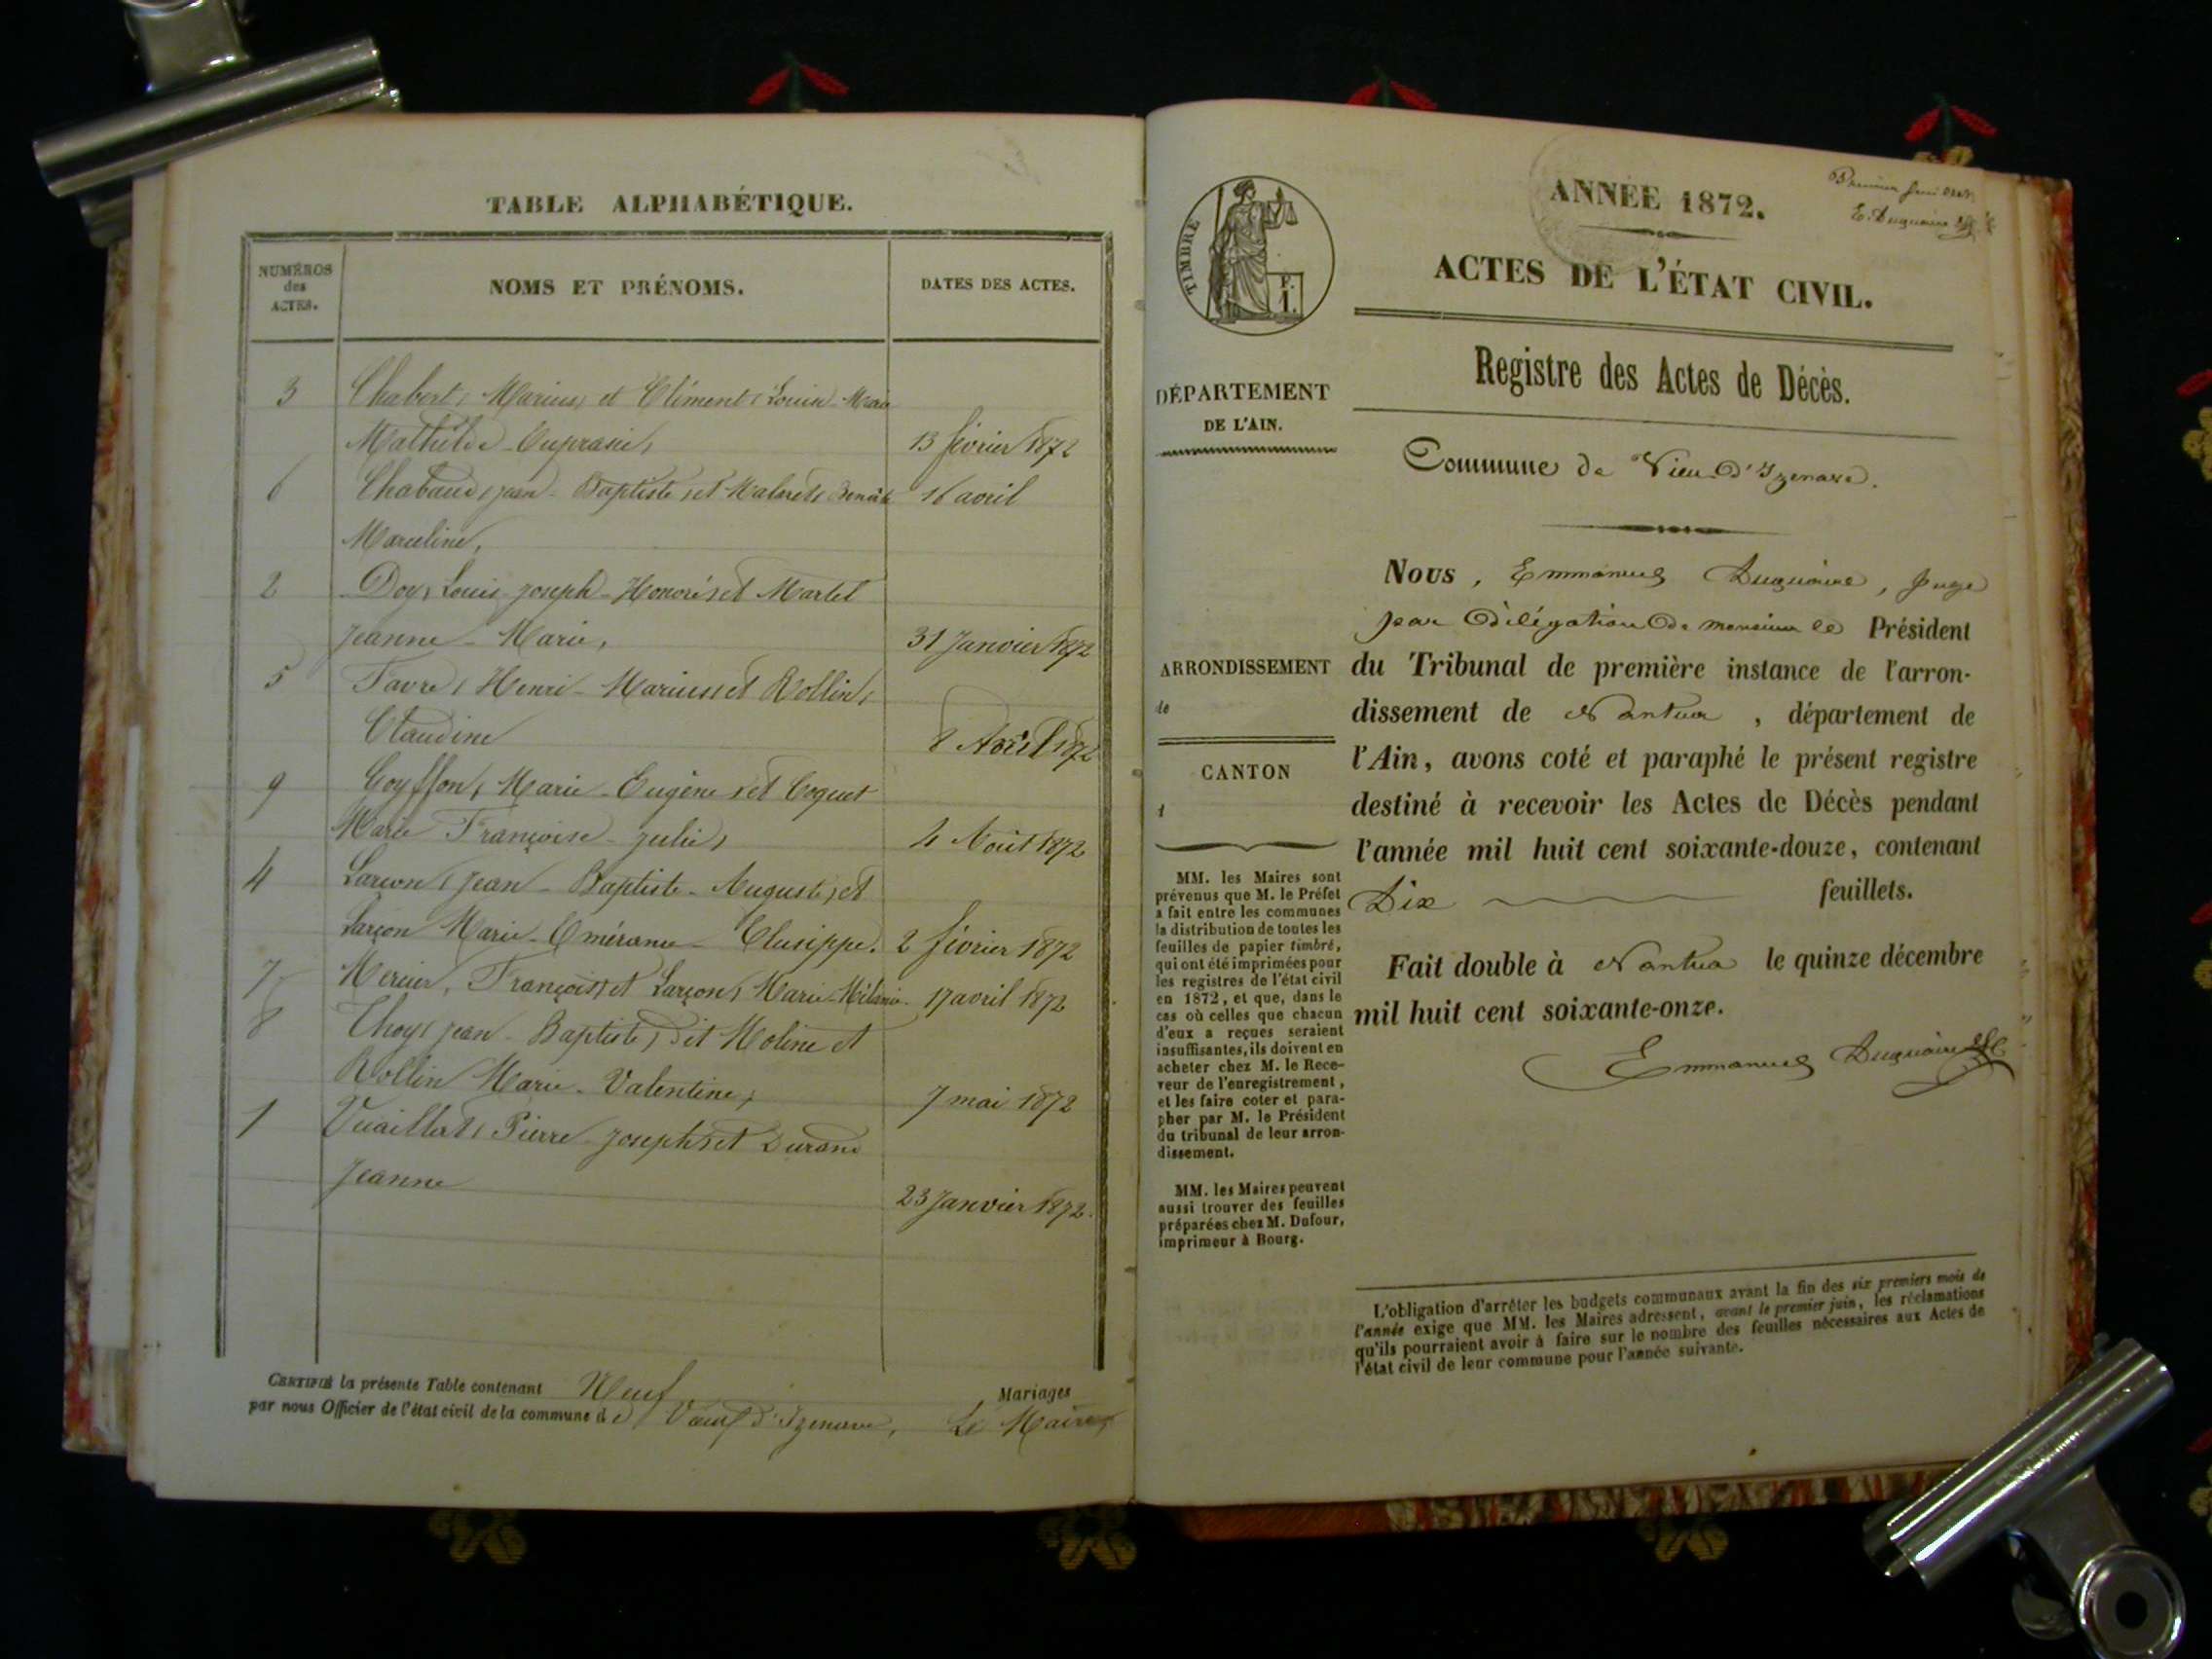 TABLE ALPHABÉTIQUE.
NUMÉROS
des
ACTES.
NOMS ET PRÉNOMS.
DATES DES ACTES.
3 Chabert, Marius, et Clément, Louise Marie
Mathilde 13 février 1872
6 Chabaud, jean-Baptiste, et 16 avril
Marceline,
2 Doy, Louis-joseph-Honoré, et Martel
Jeanne-Marie, 31 Janvier 1872
5 Favre, Henri-Marius, et Rollin,
Claudine 8 Avril 1872
9 Goyffon, Marie-Eugène, et Coquet
Marie Françoise-julie, 4 Août 1872
4 Larçon, jean-Baptiste-Auguste, et
Larçon Marie 2 février 1872
7 Mercier, François, et Larçon, Marie-Mélanie 17 avril 1872
8 Thoy, jean-Baptiste, dit Moline et
Rollin Marie-Valentine, 7 mai 1872
1 Vuaillat, Pierre-joseph, et Durand
Jeanne 23 Janvier 1872.
CERTIFIÉ la présente Table contenant Neuf Mariages
par nous Officier de l'état civil de la commune de Vieu d'Izenave, Le Maire,
ANNÉE 1872.
ACTES DE L'ÉTAT CIVIL.
Registre des Actes de Décès.
Commune de Vieu-d'Izenave.
TIMBRE
P.
1.
DÉPARTEMENT
DE L'AIN.
ARRONDISSEMENT
de
CANTON
MM. les Maires sont
prévenus que M. le Préfet
a fait entre les communes
la distribution de toutes les
feuilles de papier timbré,
qui ont été imprimées pour
les registres de l'état civil
en 1872, et que, dans le
cas où celles que chacun
d'eux a reçues seraient
insuffisantes, ils doivent en
acheter chez M. le Rece-
veur de l'enregistrement,
et les faire coter et para-
pher par M. le Président
du tribunal de leur arron-
dissement.
MM. les Maires peuvent
aussi trouver des feuilles
préparées chez M. Dufour,
imprimeur à Bourg.
Nous, Emmanuel Duquaire, juge
par délégation de monsieur le Président
du Tribunal de première instance de l'arron-
dissement de Nantua, département de
l'Ain, avons coté et paraphé le présent registre
destiné à recevoir les Actes de Décès pendant
l'année mil huit cent soixante-douze, contenant
Dix feuillets.
Fait double à Nantua le quinze décembre
mil huit cent soixante-onze.
Emmanuel Duquaire
L'obligation d'arrêter les budgets communaux avant la fin des six premiers mois de
l'année exige que MM. les Maires adressent, avant le premier juin, les réclamations
qu'ils pourraient avoir à faire sur le nombre des feuilles nécessaires aux Actes de
l'état civil de leur commune pour l'année suivante.